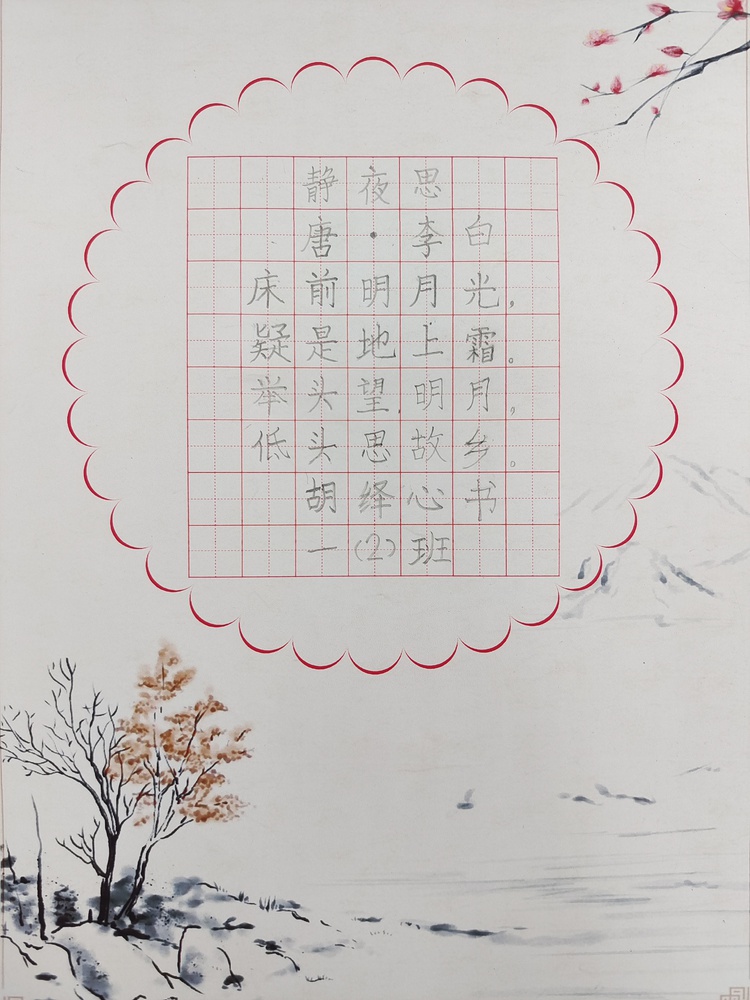 静夜思
唐·李白
床前明月光，
疑是地上霜。
举头望明月，
低头思故乡。
胡绎心书
一(2)班